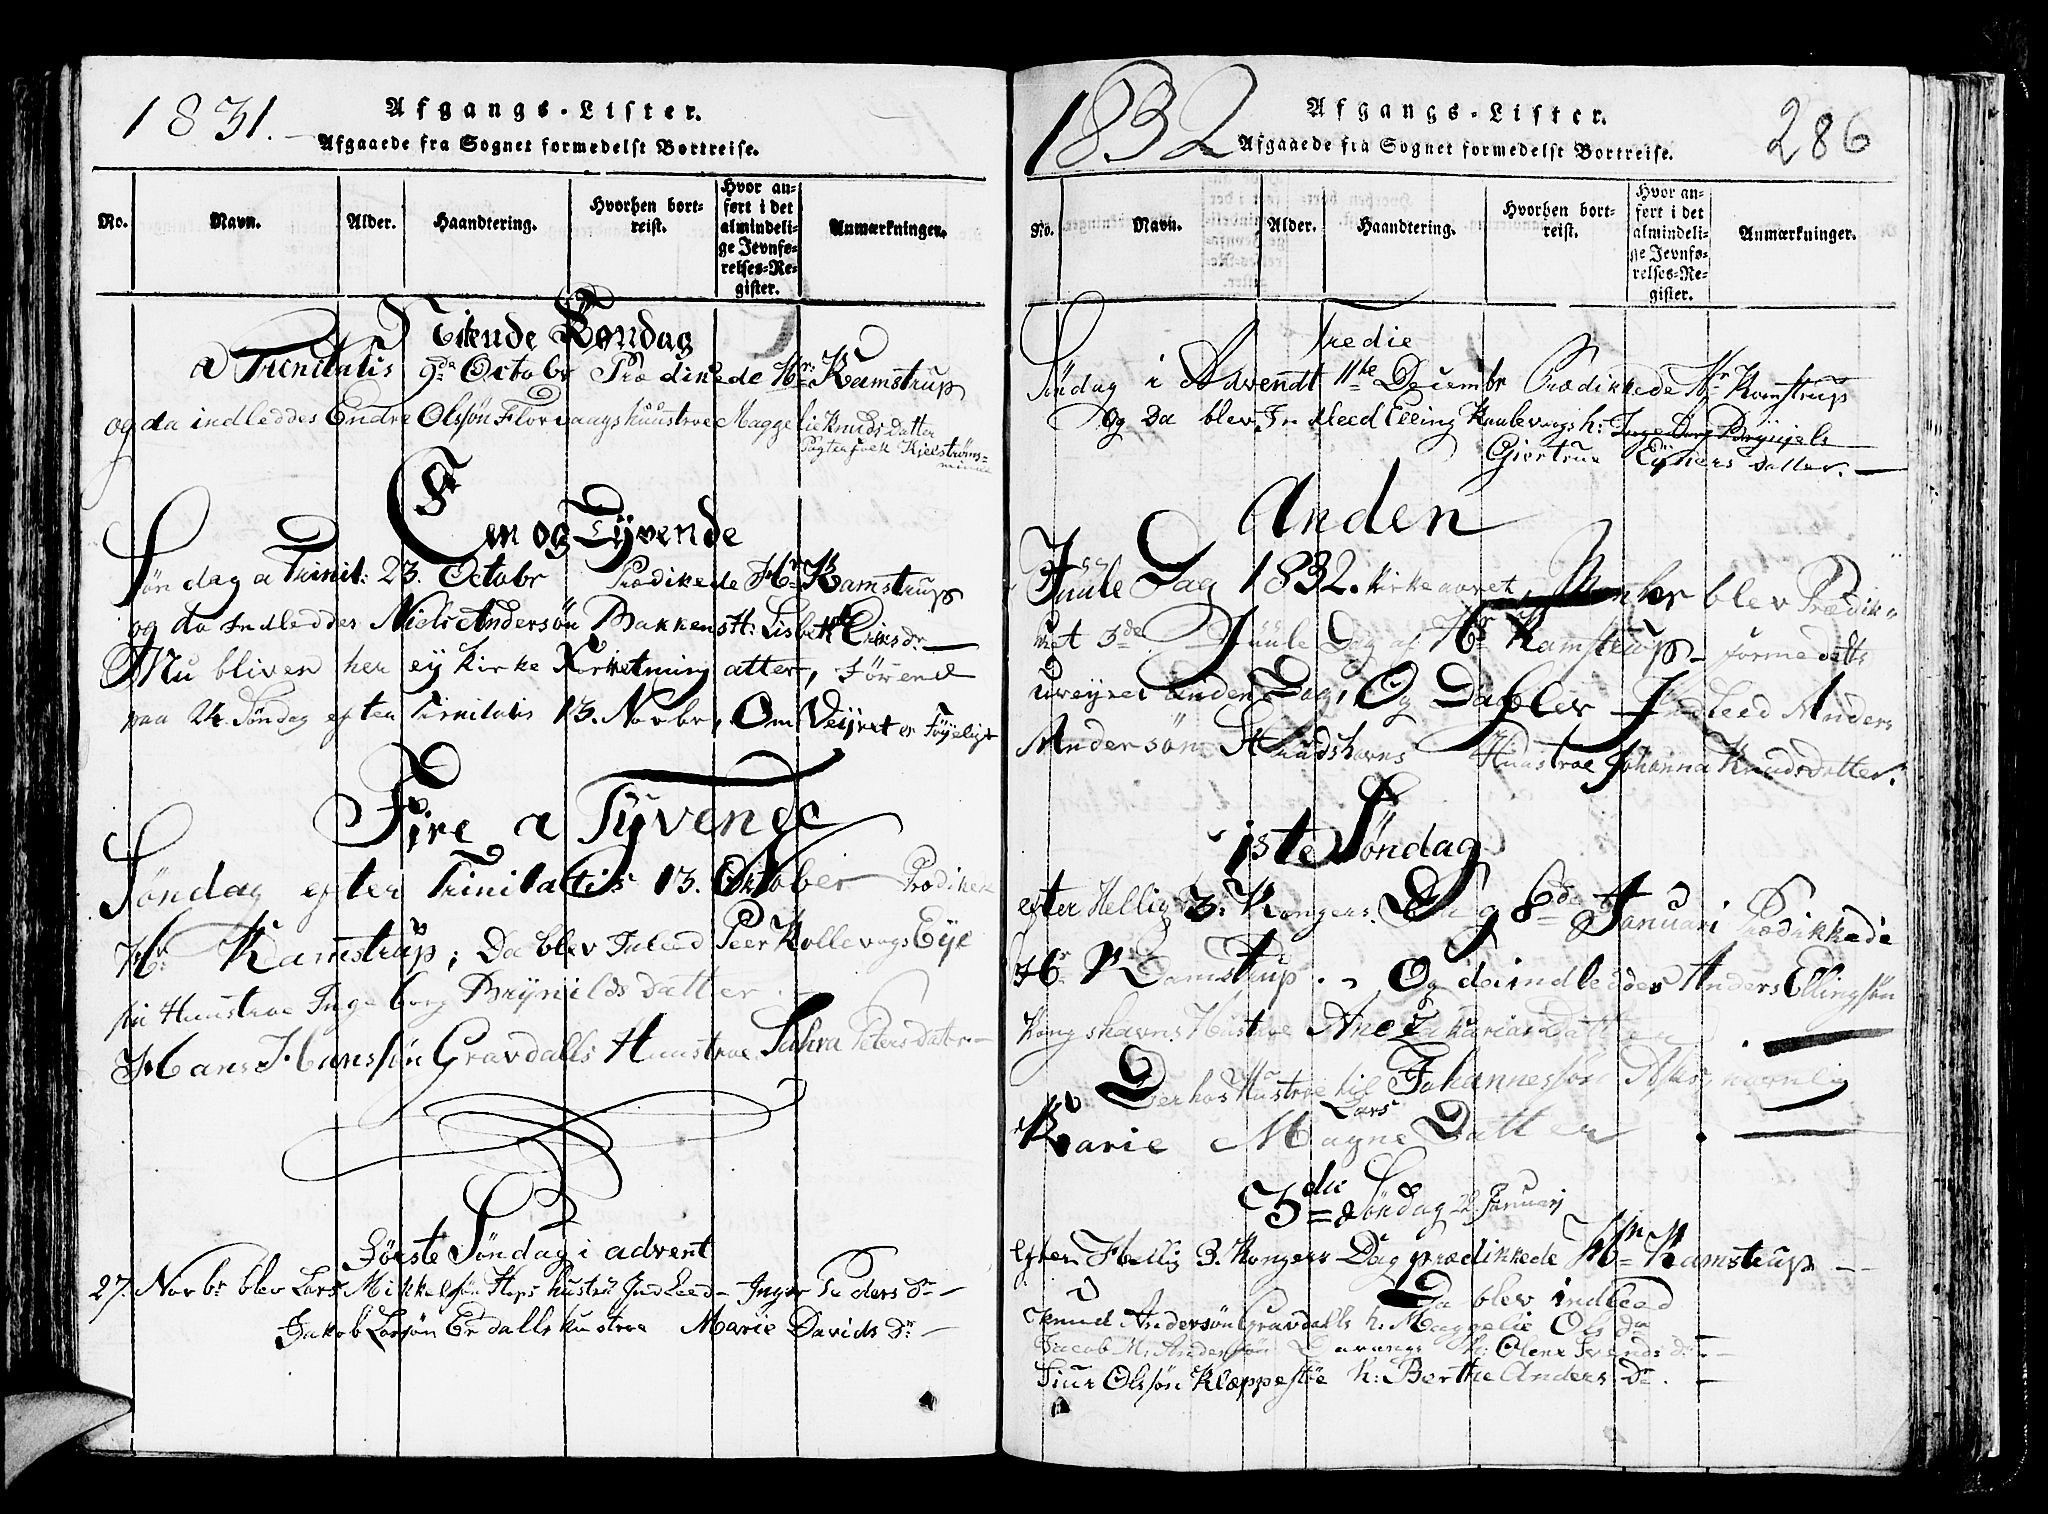 1831.
Afgangs-Lister.
Afgaaede fra Sognet formedelst Bortreise.
No.
Navn.
Alder.
Haandtering.
Hvorhen bort-
reist.
Hvor an-
ført i det
almindeli-
ge Jevnfø-
relses-Re-
gister.
Anmærkninger.
Nitende Søndag
a Trinitatis 9de Octobr Prædikede Hr: Kamstrup
og da indleddes Endre Olssøn Florvaags huustroe Maggelie Knuds Datter
Een og Tyvende
Søndag a Trinit: 23. Octobr Prædikede Hr Kamstrup
og da Indleddes Niels Andersøn Bakkens H: Lisbeth Ericsdr
Nu bliver her ey Kirke atter, førend
paa 24. Søndag efter Trinitatis 13. Novbr, Om Veyret er Føyeligt
Fire a Tyvende
Søndag efter Trinitatis 13. October Prædiket
Hr Kamstrup; Da blev Inleed Peer Kollevogs Eye
sin Huustroe Ingeborg Brynilds Datter
Hans Hansøn Gravdalls Huustroe Sahra Peters datr
Første Søndag i advent
27. Novbr blev Lars Mikkelsøn Hops hustru Indleed Inger Peders Dr
Jakob Larsøn Erdalls hustroe Marie Davids Dr
1832
Afgangs-Lister.
Afgaaede fra Sognet formedelst Bortreise.
286
No.
Navn.
Alder.
Haandtering.
Hvorhen bort-
reist.
Hvor an-
ført i det
almindeli-
ge Jevnfø-
relses-Re-
gister.
Anmærkninger.
Tredie
Søndag i Advendt 11te Decembr Prædikkede Hr Kamstrup
Og Da blev Indleed Elling h: Ingeborg Brynjels
Giertrue Datter.
Anden
Juule Dag 1832. Kirkeaaret, blev Prædik
ket 3de Juule Dag af Hr Kamstrup formedelst
uveyret anden Dag, Og Da blev Indleed Anders
Andersøn Huustroe Johanna Knudsdatter.
1ste Søndag
efter Hellig 3. Kongers Dag 8de Januari Prædikkede
Hr Kamstrup. Og da indleddes Anders Ellingsøn
Kongshavns Hustroe Ane Zakarias Datter
Derhos Hustroe til Johannessøn Ask, navnlig
Karie Magne Lars Datter
3die Søndag 22 Januarj
efter Hellig 3. Kongers Dag prædikkede Hr Kamstrup
Da blev indleed
Knud Andersøn Gravdals h: Maggelie Ols Dr
Jacob M: Andersøn h: Olene Svends Dr
Siur Olssøn Kleppestøe h: Berthe Anders Dr.